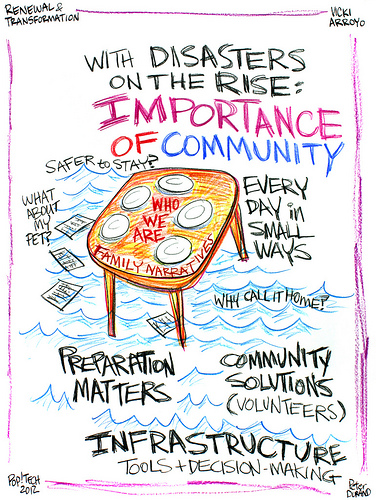 RENEWAL &
TRANSFORMATION
VICKI
ARROYO
WITH DISASTERS
ON THE RISE:
IMPORTANCE
OF COMMUNITY
SAFER to STAY?
WHAT
ABOUT
MY
PET?
WHO
WE
ARE
FAMILY NARRATIVES
EVERY
DAY in
SMALL
WAYS
WHY CALL IT HOME?
PREPARATION
MATTERS
COMMUNITY
SOLUTIONS
(VOLUNTEERS)
INFRASTRUCTURE
TOOLS + DECISION-MAKING
POP!TECH
2012
PETER
DURAND